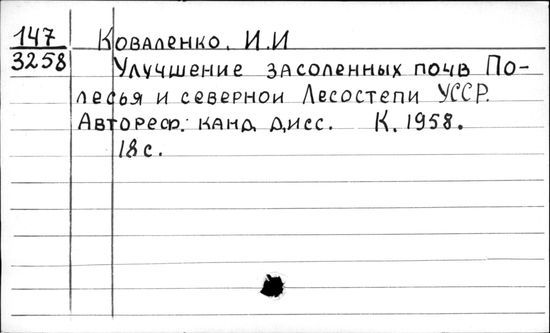 147 Коваленко, И.И
3258 Улучшение засоленных почв По-
лесья и северной Лесостепи УССР.
Автореф: канд дисс. К. 1958.
18 с.